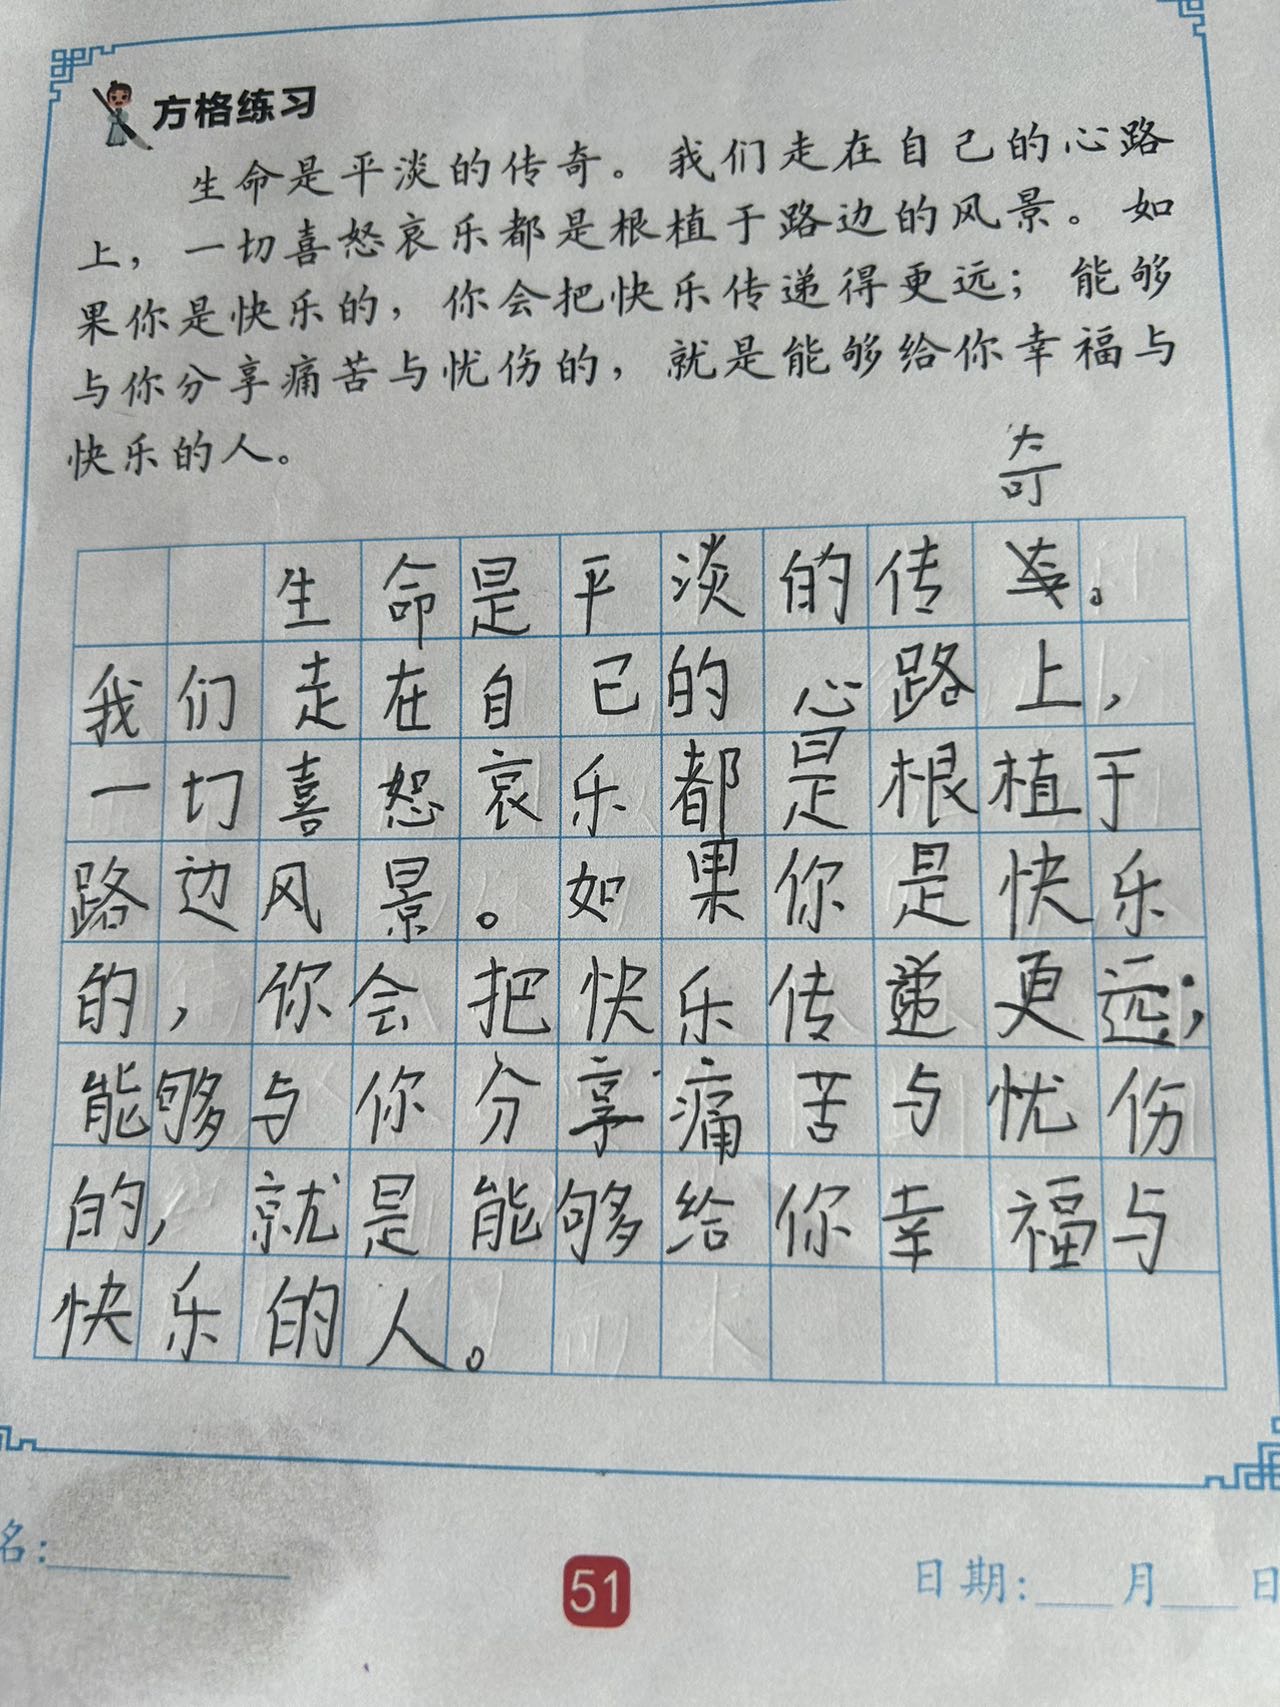 方格练习
生命是平淡的传奇。我们走在自己的心路
上，一切喜怒哀乐都是根植于路边的风景。如
果你是快乐的，你会把快乐传递得更远；能够
与你分享痛苦与忧伤的，就是能够给你幸福与
快乐的人。
奇
生命是平淡的传。
我们走在自己的心路上，
一切喜恕哀乐都是根植于
路边风景。如果你是快乐
的，你会把快乐传递更远；
能够与你分享痛苦与忧伤
的，就是能够给你幸福与
快乐的人。
名：
51
日期： 月 日